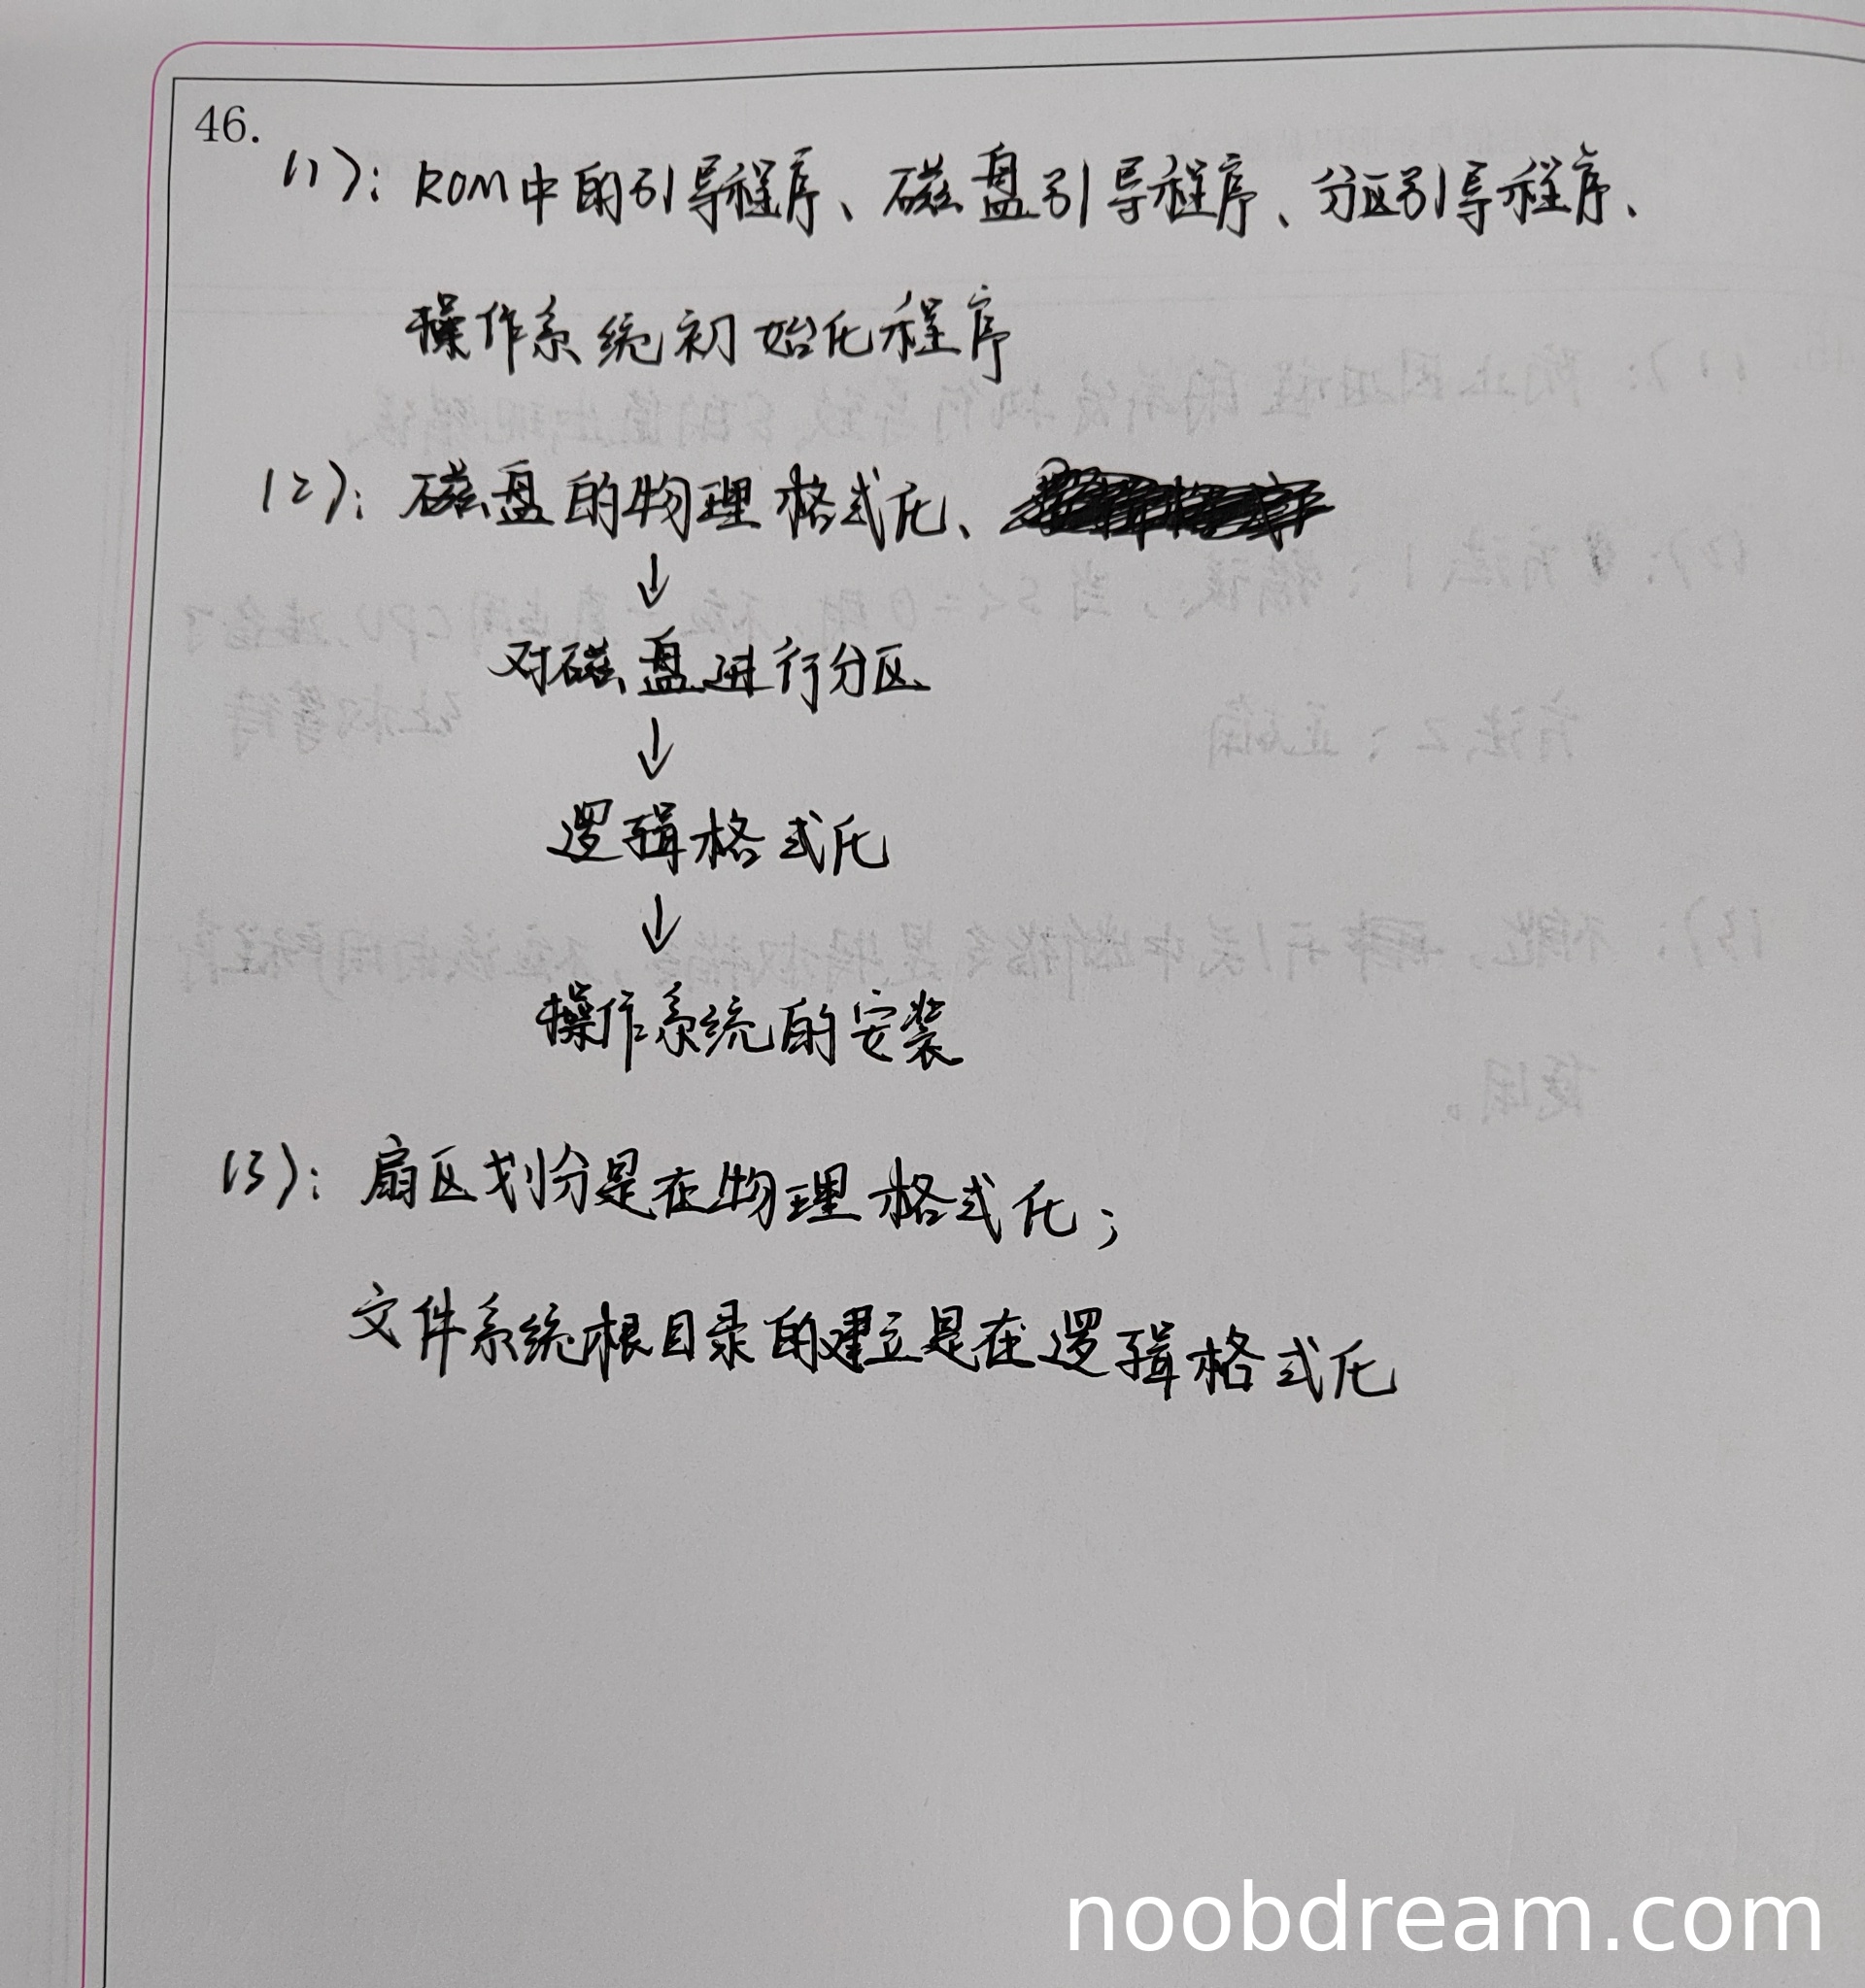 46.
(1): ROM中的引导程序、磁盘引导程序、分区引导程序、
操作系统初始化程序
(2): 磁盘的物理格式化、
↓
对磁盘进行分区
↓
逻辑格式化
↓
操作系统的安装
(3): 扇区划分是在物理格式化;
文件系统根目录的建立是在逻辑格式化
noobdream.com